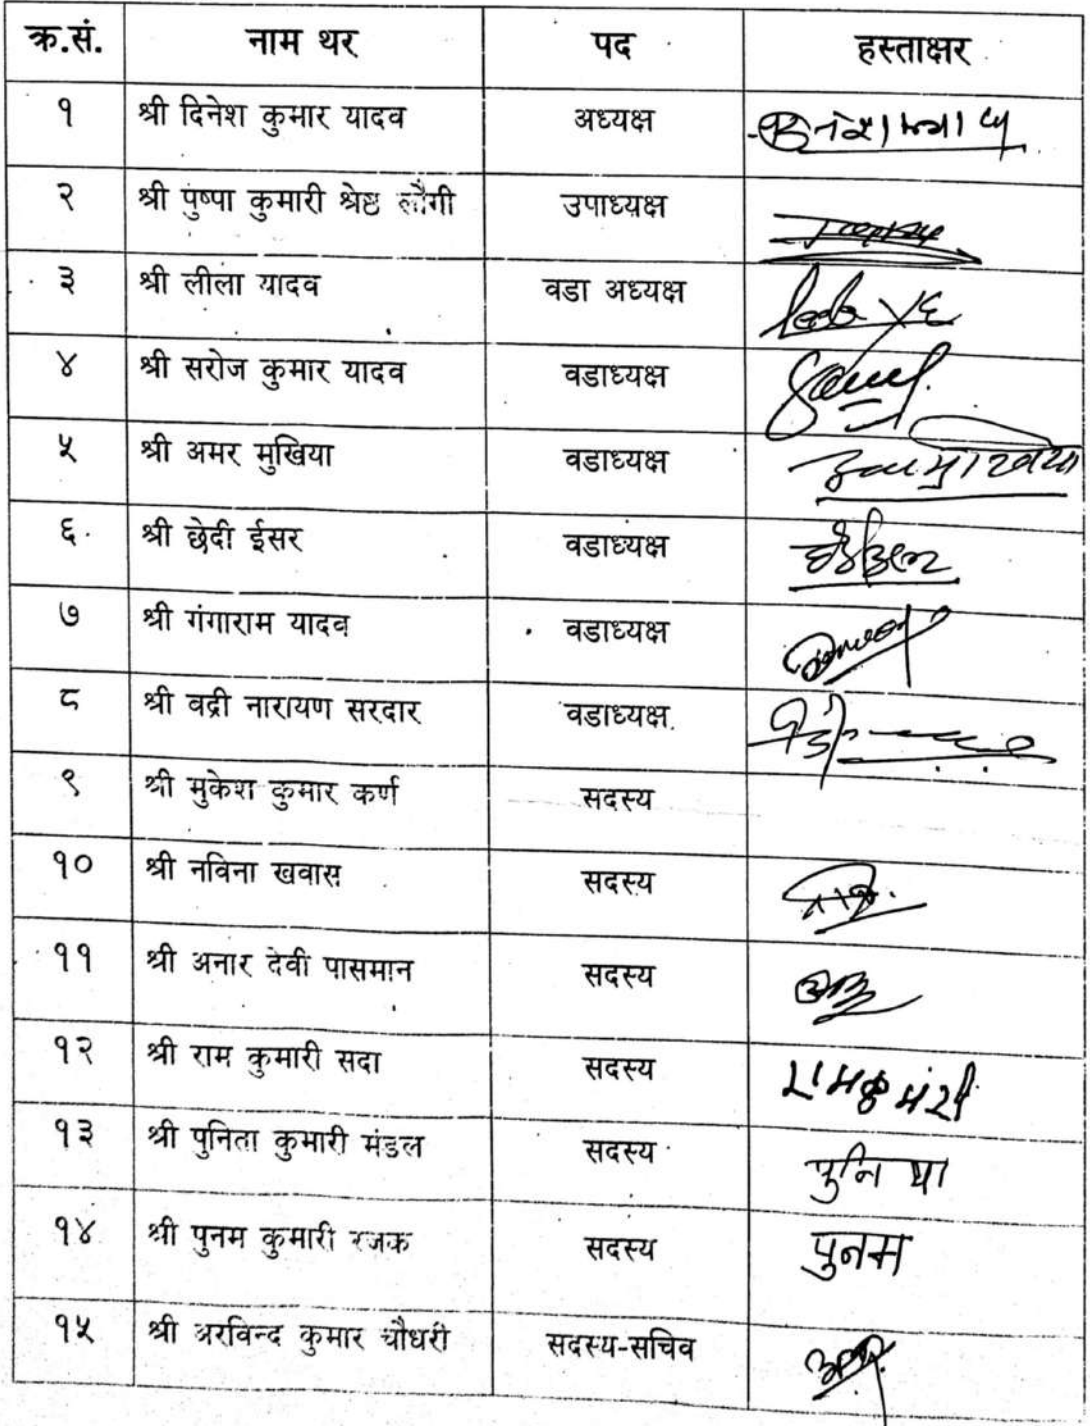 क्र.सं. नाम थर पद हस्ताक्षर
१ श्री दिनेश कुमार यादव अध्यक्ष
२ श्री पुष्पा कुमारी श्रेष्ठ लौगी उपाध्यक्ष
३ श्री लीला यादव वडा अध्यक्ष
४ श्री सरोज कुमार यादव वडाध्यक्ष
५ श्री अमर मुखिया वडाध्यक्ष
६ श्री छेदी ईसर वडाध्यक्ष
७ श्री गंगाराम यादव वडाध्यक्ष
८ श्री वद्री नारायण सरदार वडाध्यक्ष
९ श्री मुकेश कुमार कर्ण सदस्य
१० श्री नविना खवास सदस्य
११ श्री अनार देवी पासमान सदस्य
१२ श्री राम कुमारी सदा सदस्य
१३ श्री पुनिता कुमारी मंडल सदस्य
१४ श्री पुनम कुमारी रजक सदस्य पुनम
१५ श्री अरविन्द कुमार चौधरी सदस्य-सचिव